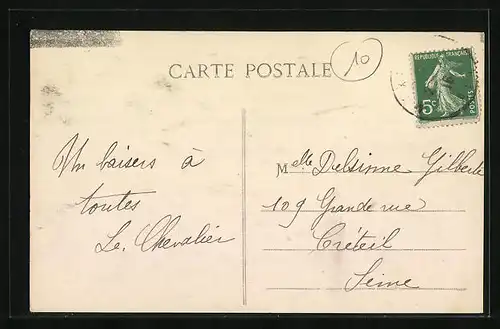 CARTE POSTALE
10
REPUBLIQUE FRANÇAISE
5c
POSTES
Un baisers à
toutes
Le. Chevalier
Melle Delsinne Gilberte
109 Grande rue
Créteil
Seine